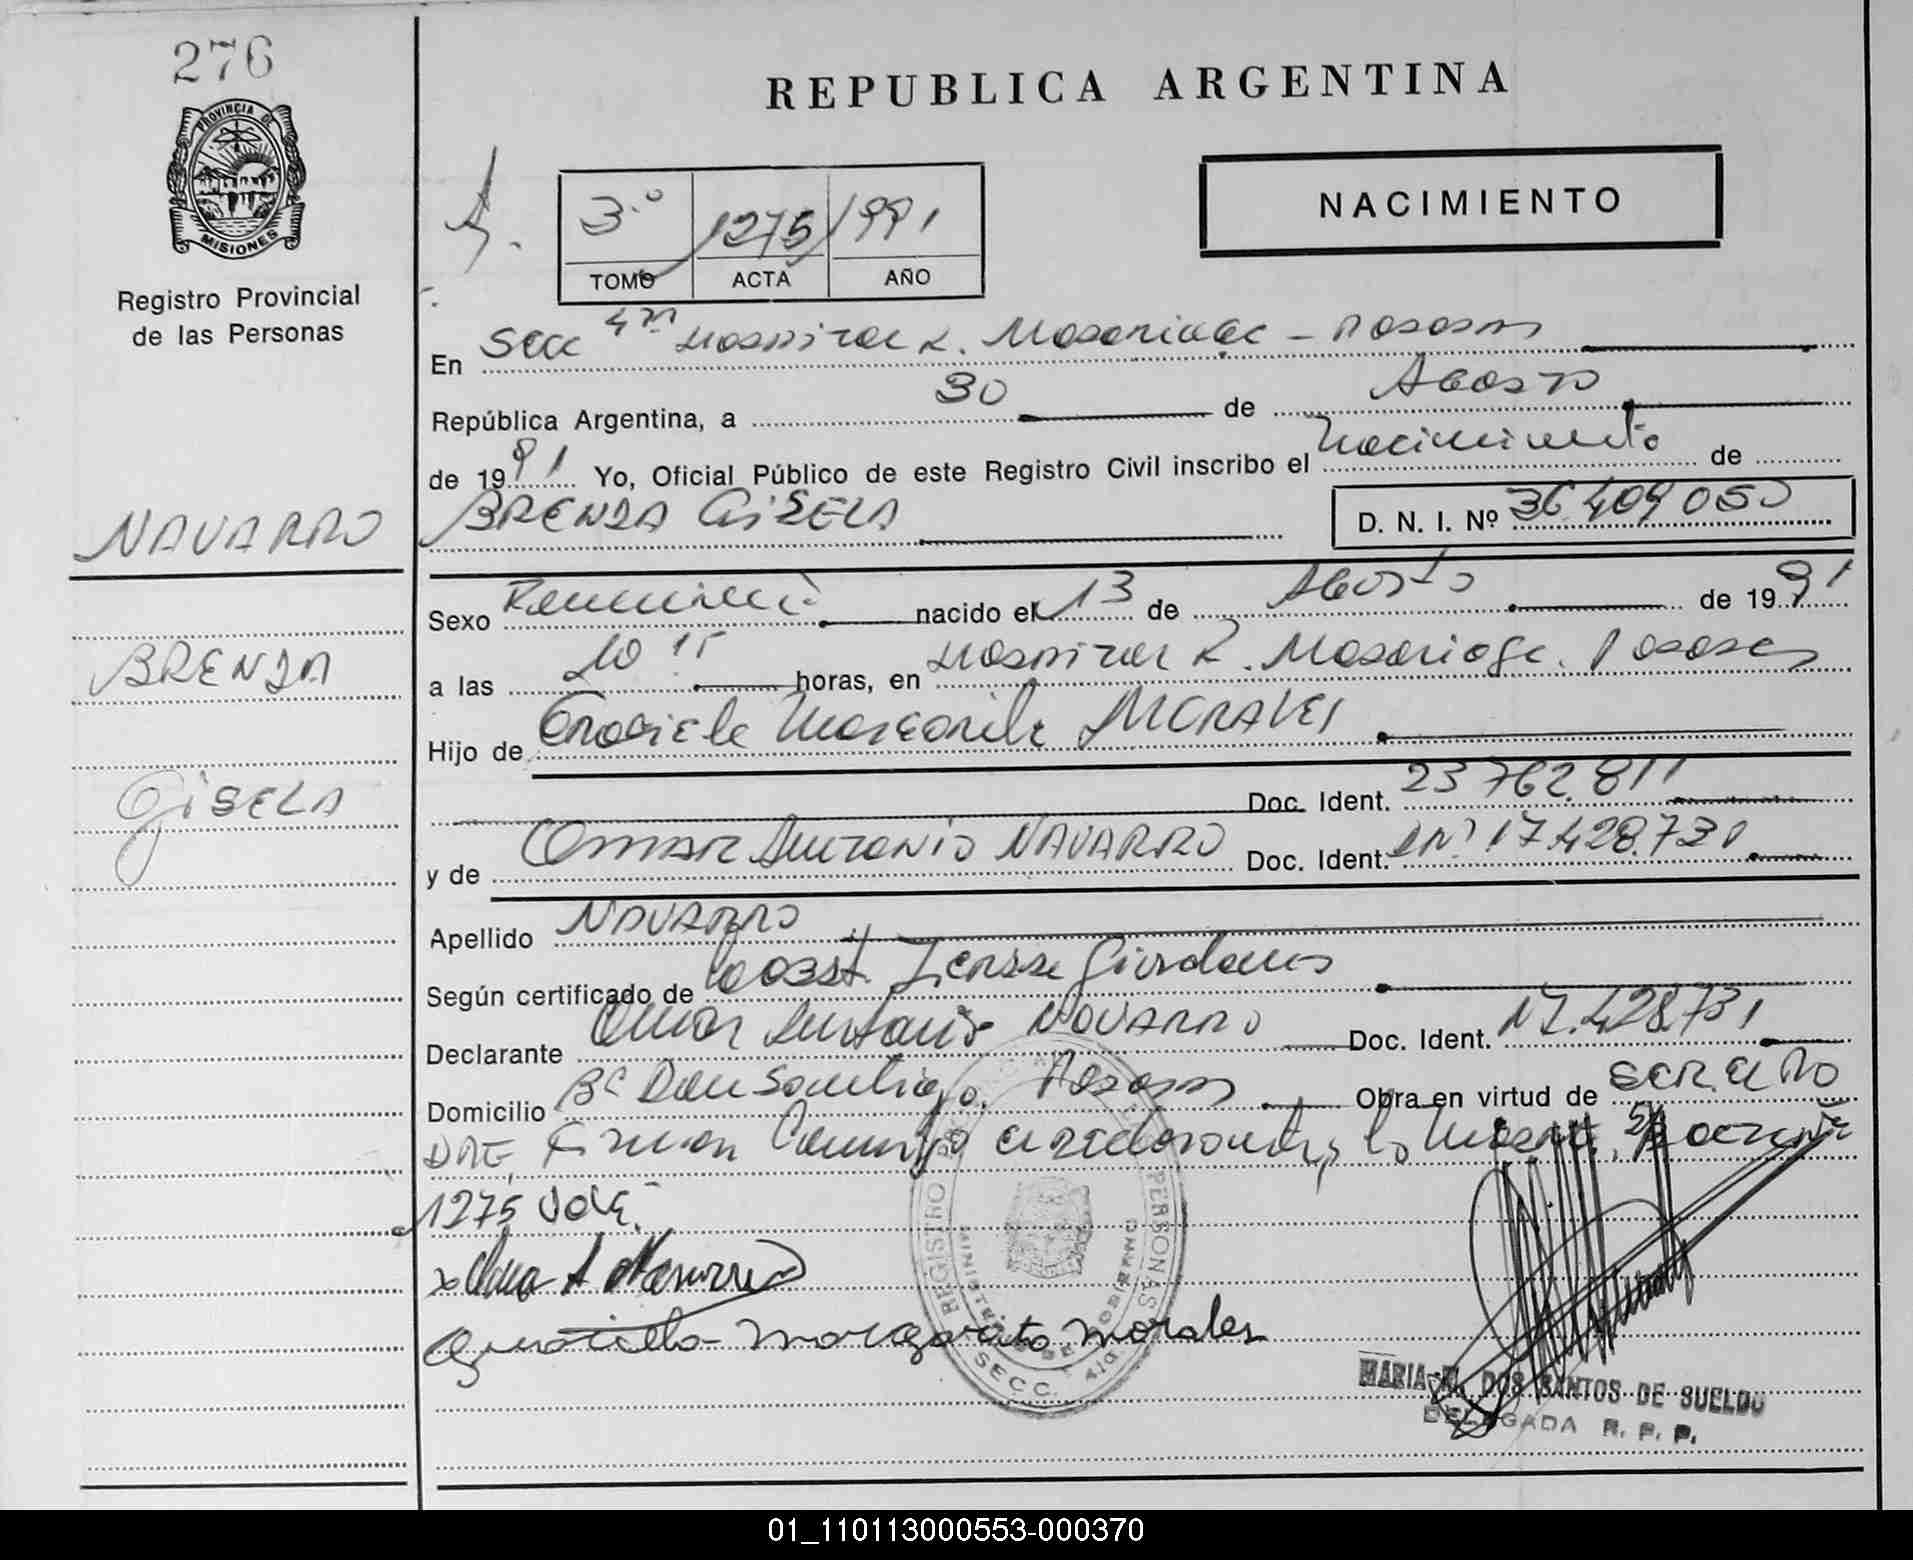 276
REPUBLICA ARGENTINA
PROVINCIA DE
MISIONES
Registro Provincial
de las Personas
3.º 1275 1991
TOMO ACTA AÑO
NACIMIENTO
En Secc 4ta Hospital R. Madariaga - Posadas
República Argentina, a 30 de Agosto
de 1991 Yo, Oficial Público de este Registro Civil inscribo el Nacimiento de
NAVARRO
BRENDA GISELA
D. N. I. Nº 36.409.050
Sexo Femenino nacido el 13 de Agosto de 1991
BRENDA
a las 20 15 horas, en Hospital R. Madariaga. Posadas
Hijo de Graciela Margarita MORALES
GISELA
Doc. Ident. 23.762.811
y de OMAR Antonio NAVARRO Doc. Ident. DNI 17.428.731
Apellido NAVARRO
Según certificado de Obst. Giordano
Declarante Omar Antonio NAVARRO Doc. Ident. 17.428.731
Domicilio Bº Don Santiago. Posadas Obra en virtud de SER EL PA
DRE. Firman Conmigo el declarante y la Madre.
1275 Vale.
Graciela Margarita Morales
REGISTRO PERSONAS
MINISTERIO DE GOBIERNO
SECC. 4ta
MARIA DOS SANTOS DE SUELDO
DELEGADA R. P. P.
01_110113000553-000370